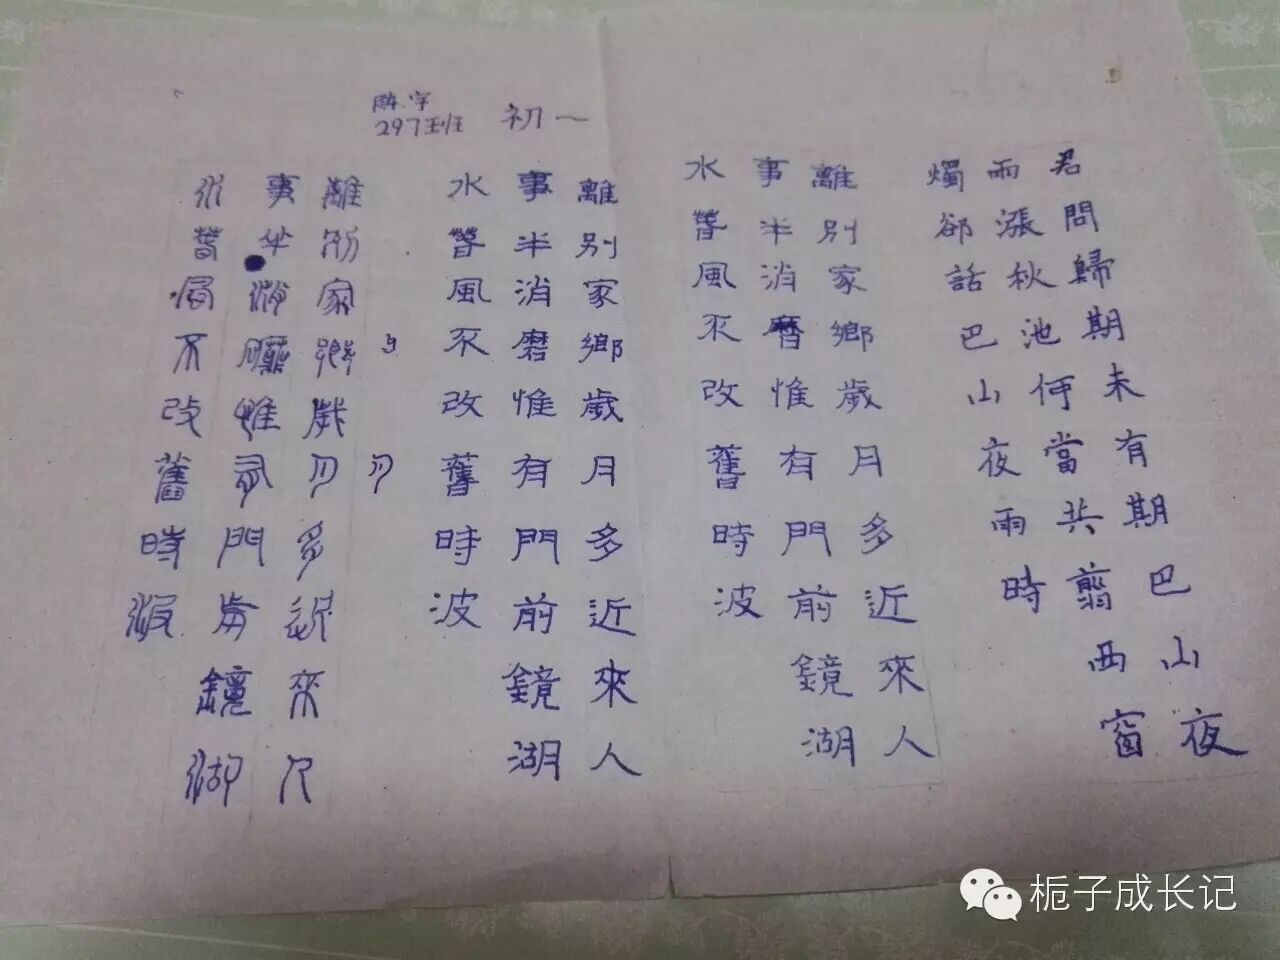 陈宇
297班 初一
君問歸期未有期巴山夜
雨漲秋池何當共翦西窗
燭卻話巴山夜雨時
離別家鄉歲月多近來人
事半消磨惟有門前鏡湖
水春風不改舊時波
離別家鄉歲月多近來人
事半消磨惟有門前鏡湖
水春風不改舊時波
月
離別家鄉歲月多近來人
事半消磨惟有門前鏡湖
水春風不改舊時波
栀子成长记